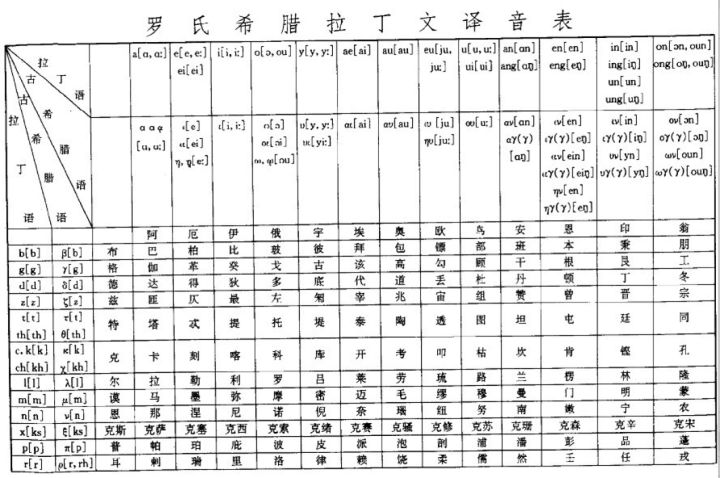 罗氏希腊拉丁文译音表
拉丁语 古希腊语 古拉丁语 希腊语
a[ɑ, ɑ:] e[e, e:] i[i, i:] o[ɔ, ou] y[y, y:] ae[ai] au[au] eu[ju, u[u, u: an[ɑn] en[en] in[in] on[ɔn, oun]
ei[ei] ju: ui[ui] ang[ɑŋ] eng[eŋ] ing[iŋ] ong[oŋ, ouŋ]
un[un]
ung[uŋ]
ι[i, i:] αι[ai] αυ[au] ου[u:] αν[ɑn] ον[ɔn]
[ɑ, ɑ:] ηυ[ju:] αγ(γ) ων[oun]
[ɑŋ] υν[yn] ωγ(γ)[ouŋ]
ην[en] υγ(γ)[yŋ]
ηγ(γ)[eŋ]
阿 厄 伊 俄 宇 埃 奥 欧 乌 安 恩 印 翁
b[b] β[b] 布 巴 柏 比 玻 彼 拜 包 镖 部 班 本 秉 朋
g[g] γ[g] 格 伽 革 癸 戈 古 该 高 勾 顾 干 根 艮 工
d[d] δ[d] 德 达 得 狄 多 底 代 道 丢 杜 丹 顿 丁 冬
z[z] ζ[z] 兹 匝 仄 最 左 宰 兆 宙 组 赞 曾 晋 宗
t[t] τ[t] 特 塔 忒 提 托 堤 泰 陶 透 图 坦 屯 廷 同
th[th] θ[th]
c, k[k] κ[k] 克 卡 刻 喀 科 库 开 考 叩 枯 坎 肯 铿 孔
ch[kh] χ[kh]
l[l] λ[l] 尔 拉 勒 利 罗 吕 莱 劳 琉 路 兰 楞 林 隆
m[m] μ[m] 谟 马 墨 弥 摩 密 迈 毛 缪 穆 曼 门 明 蒙
n[n] ν[n] 恩 那 涅 尼 诺 倪 奈 瑙 纽 努 南 嫩 宁 农
x[ks] ξ[ks] 克斯 克萨 克塞 克西 克索 克绪 克赛 克骚 克修 克苏 克珊 克森 克辛 克宋
p[p] π[p] 普 帕 珀 庇 波 皮 派 泡 剖 浦 潘 彭 品 蓬
r[r] ρ[r, rh] 耳 剌 瑞 里 洛 律 赖 饶 柔 儒 然 壬 任 戎